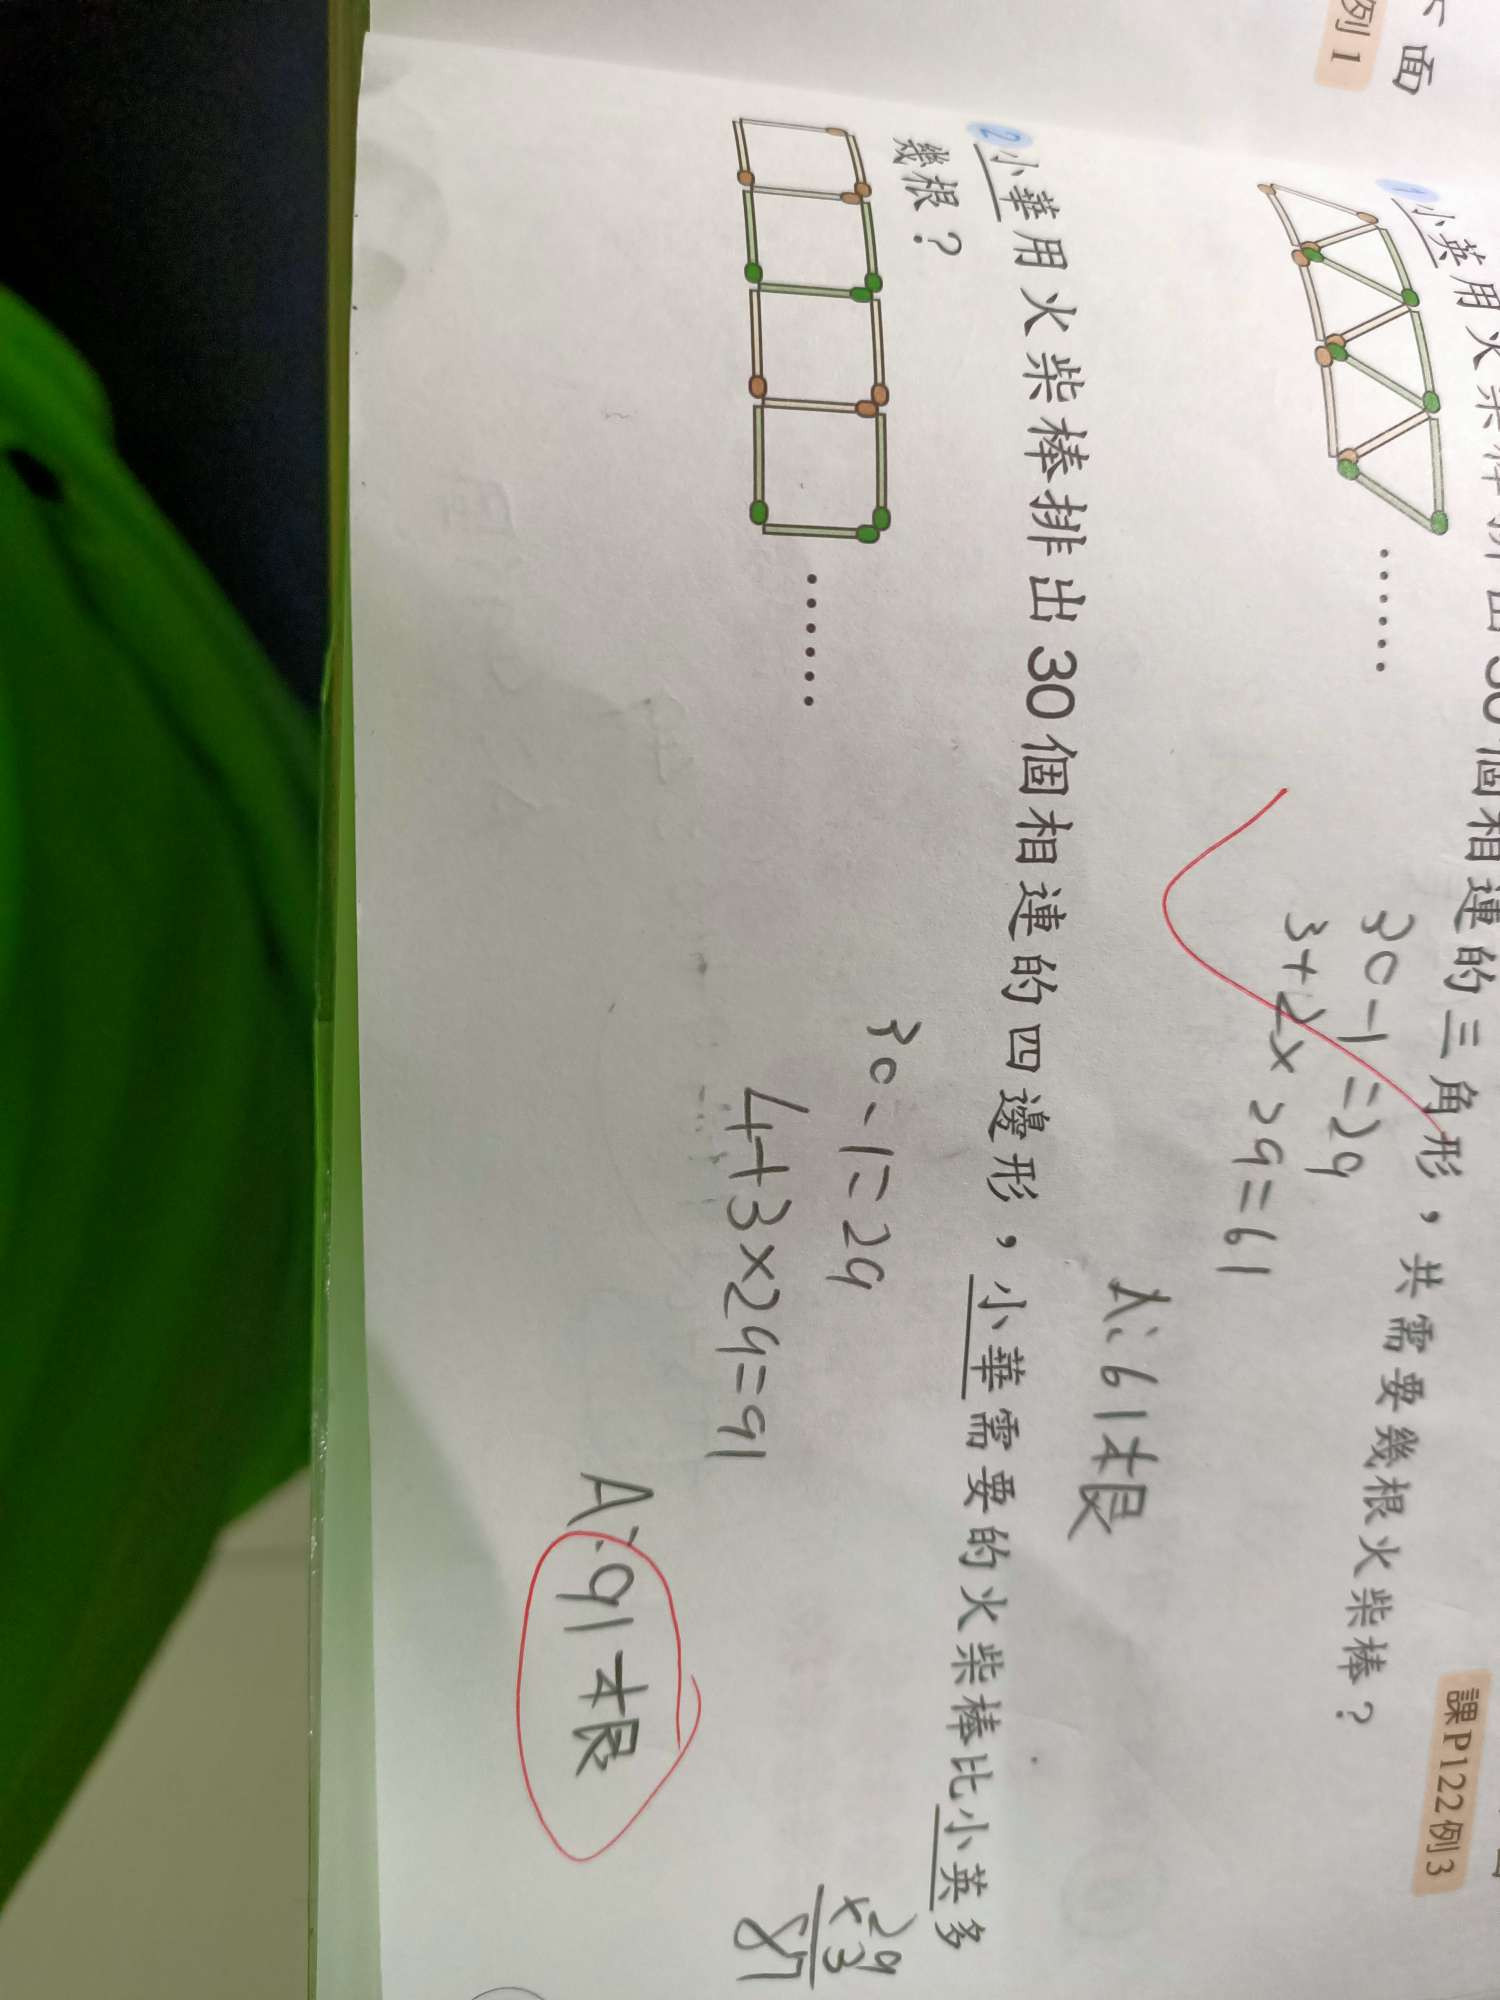 下面
例1
課P122例3
①小英用火柴棒排出30個相連的三角形，共需要幾根火柴棒？
......
30-1=29
3+2×29=61
A:61根
②小華用火柴棒排出30個相連的四邊形，小華需要的火柴棒比小英多
幾根？
......
30-1=29
4+3×29=91
A:91根
29
×3
87